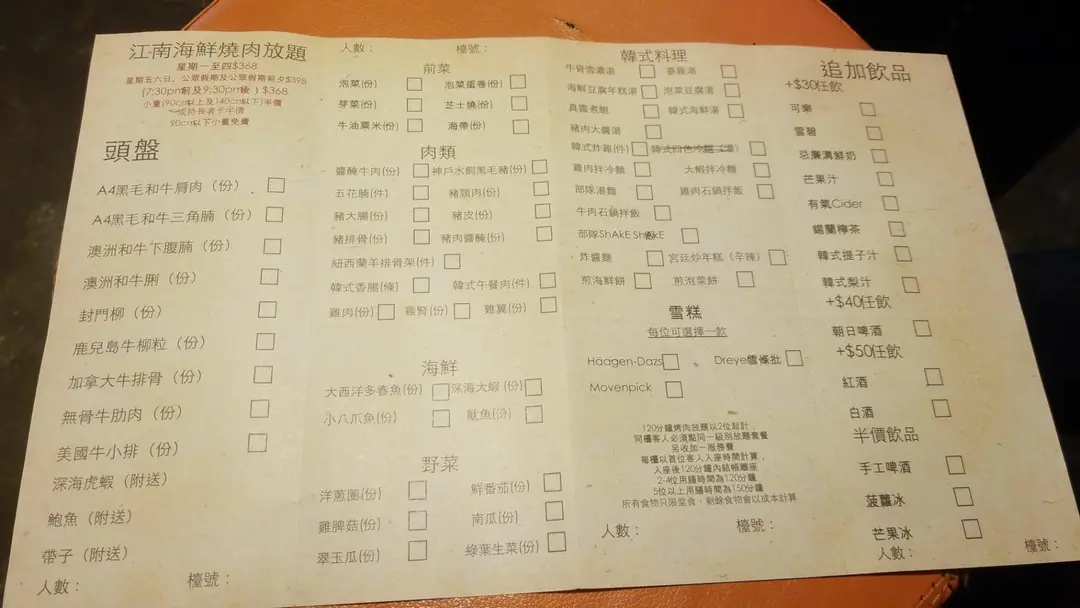 江南海鮮燒肉放題
星期一至四$368
星期五六日、公眾假期及公眾假期前夕$398
(7:30pm前及9:30pm後)$368
小童(90cm以上及140cm以下)半價
或持長者卡半價
90cm以下小童免費
頭盤
A4黑毛和牛肩肉（份）
A4黑毛和牛三角腩（份）
澳洲和牛下腹腩（份）
澳洲和牛脷（份）
封門柳（份）
鹿兒島牛柳粒（份）
加拿大牛排骨（份）
無骨牛肋肉（份）
美國牛小排（份）
深海虎蝦（附送）
鮑魚（附送）
帶子（附送）
人數： 檯號：
人數： 檯號：
前菜
泡菜(份) 泡菜蛋卷(份)
芽菜(份) 芝士燒(份)
牛油粟米(份) 海帶(份)
肉類
醬醃牛肉(份) 神戶水飼黑毛豬(份)
五花腩(件) 豬頸肉(份)
豬大腸(份) 豬皮(份)
豬排骨(份) 豬肉醬醃(份)
紐西蘭羊排骨架(件)
韓式香腸(條) 韓式午餐肉(件)
雞肉(份) 雞腎(份) 雞翼(份)
海鮮
大西洋多春魚(份) 深海大蝦(份)
小八爪魚(份) 魷魚(份)
野菜
洋蔥圈(份) 鮮番茄(份)
雞脾菇(份) 南瓜(份)
翠玉瓜(份) 綠葉生菜(份)
韓式料理
牛骨雪濃湯 蔘雞湯
海鮮豆腐年糕湯 泡菜豆腐湯
真雪煮蜆 韓式海鮮湯
豬肉大醬湯
韓式炸雞(件)
雞肉拌冷麵 大蝦拌冷麵
部隊湯麵 雞肉石鍋拌飯
牛肉石鍋拌飯
部隊ShAkE ShAkE
炸醬麵 宮廷炒年糕（辛辣）
煎海鮮餅 煎泡菜餅
雪糕
每位可選擇一款
Häagen-Dazs Dreye雪條批
Movenpick
120分鐘烤肉放題以2位起計，
同檯客人必須點同一級別放題套餐
另收加一服務費
每檯以首位客人入座時間計算，
入座後120分鐘內結帳離座
2-4位用膳時間為120分鐘
5位以上用膳時間為150分鐘
所有食物只限堂食，剩餘食物會以成本計算
人數： 檯號：
追加飲品
+$30任飲
可樂
雪碧
忌廉溝鮮奶
芒果汁
有氣Cider
錫蘭檸茶
韓式提子汁
韓式梨汁
+$40任飲
朝日啤酒
+$50任飲
紅酒
白酒
半價飲品
手工啤酒
菠蘿冰
芒果冰
人數： 檯號：